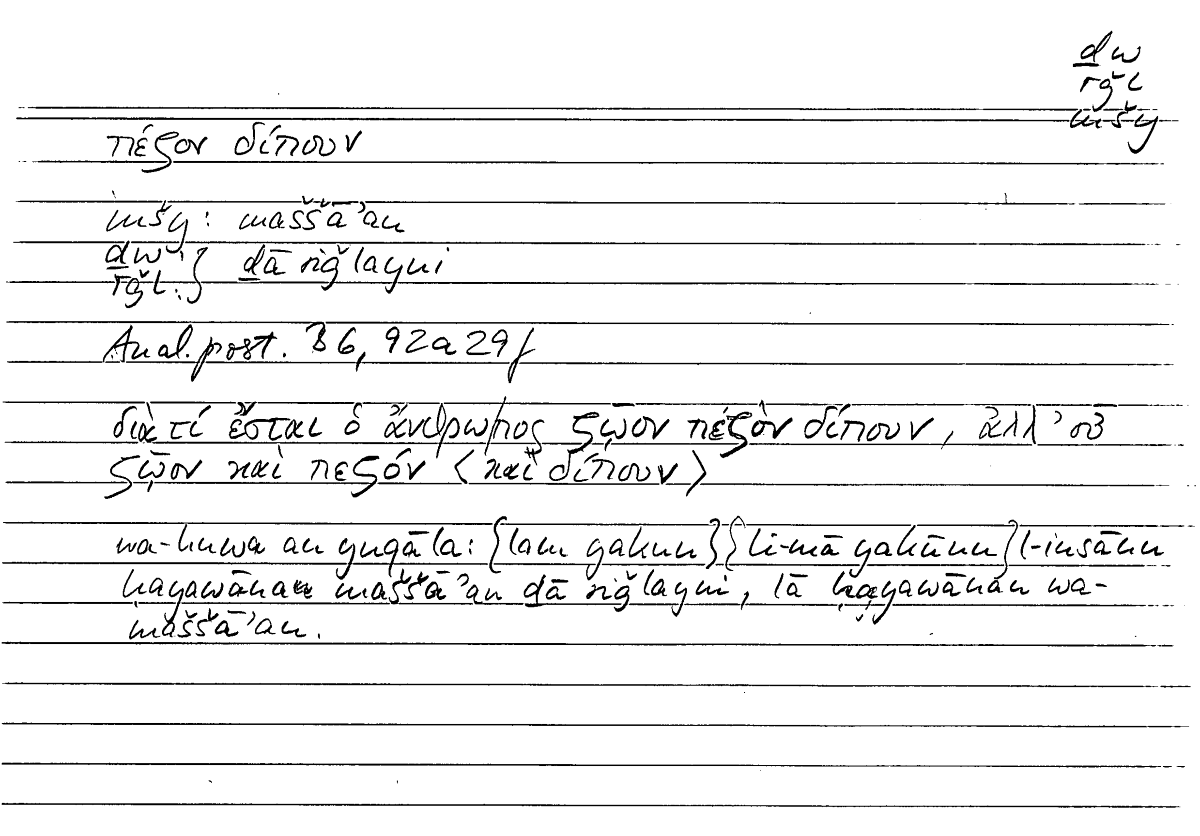 ḏw
rǧl
mšy
πέζον δίπουν
mšy: maššāʾan
ḏw:
rǧl: } ḏā riǧlayni
Anal. post. B 6, 92a29f
διὰ τί ἔσται ὁ ἄνθρωπος ζῷον πέζὸν δίπουν, ἀλλ’ οὐ
ζῷον καὶ πεζόν 〈καὶ δίπουν〉
wa-huwa an yuqāla: {lam yakun} {li-mā yakūnu} l-insānu
ḥayawānan maššāʾan ḏā riǧlayni, lā ḥayawānan wa-
maššāʾan.